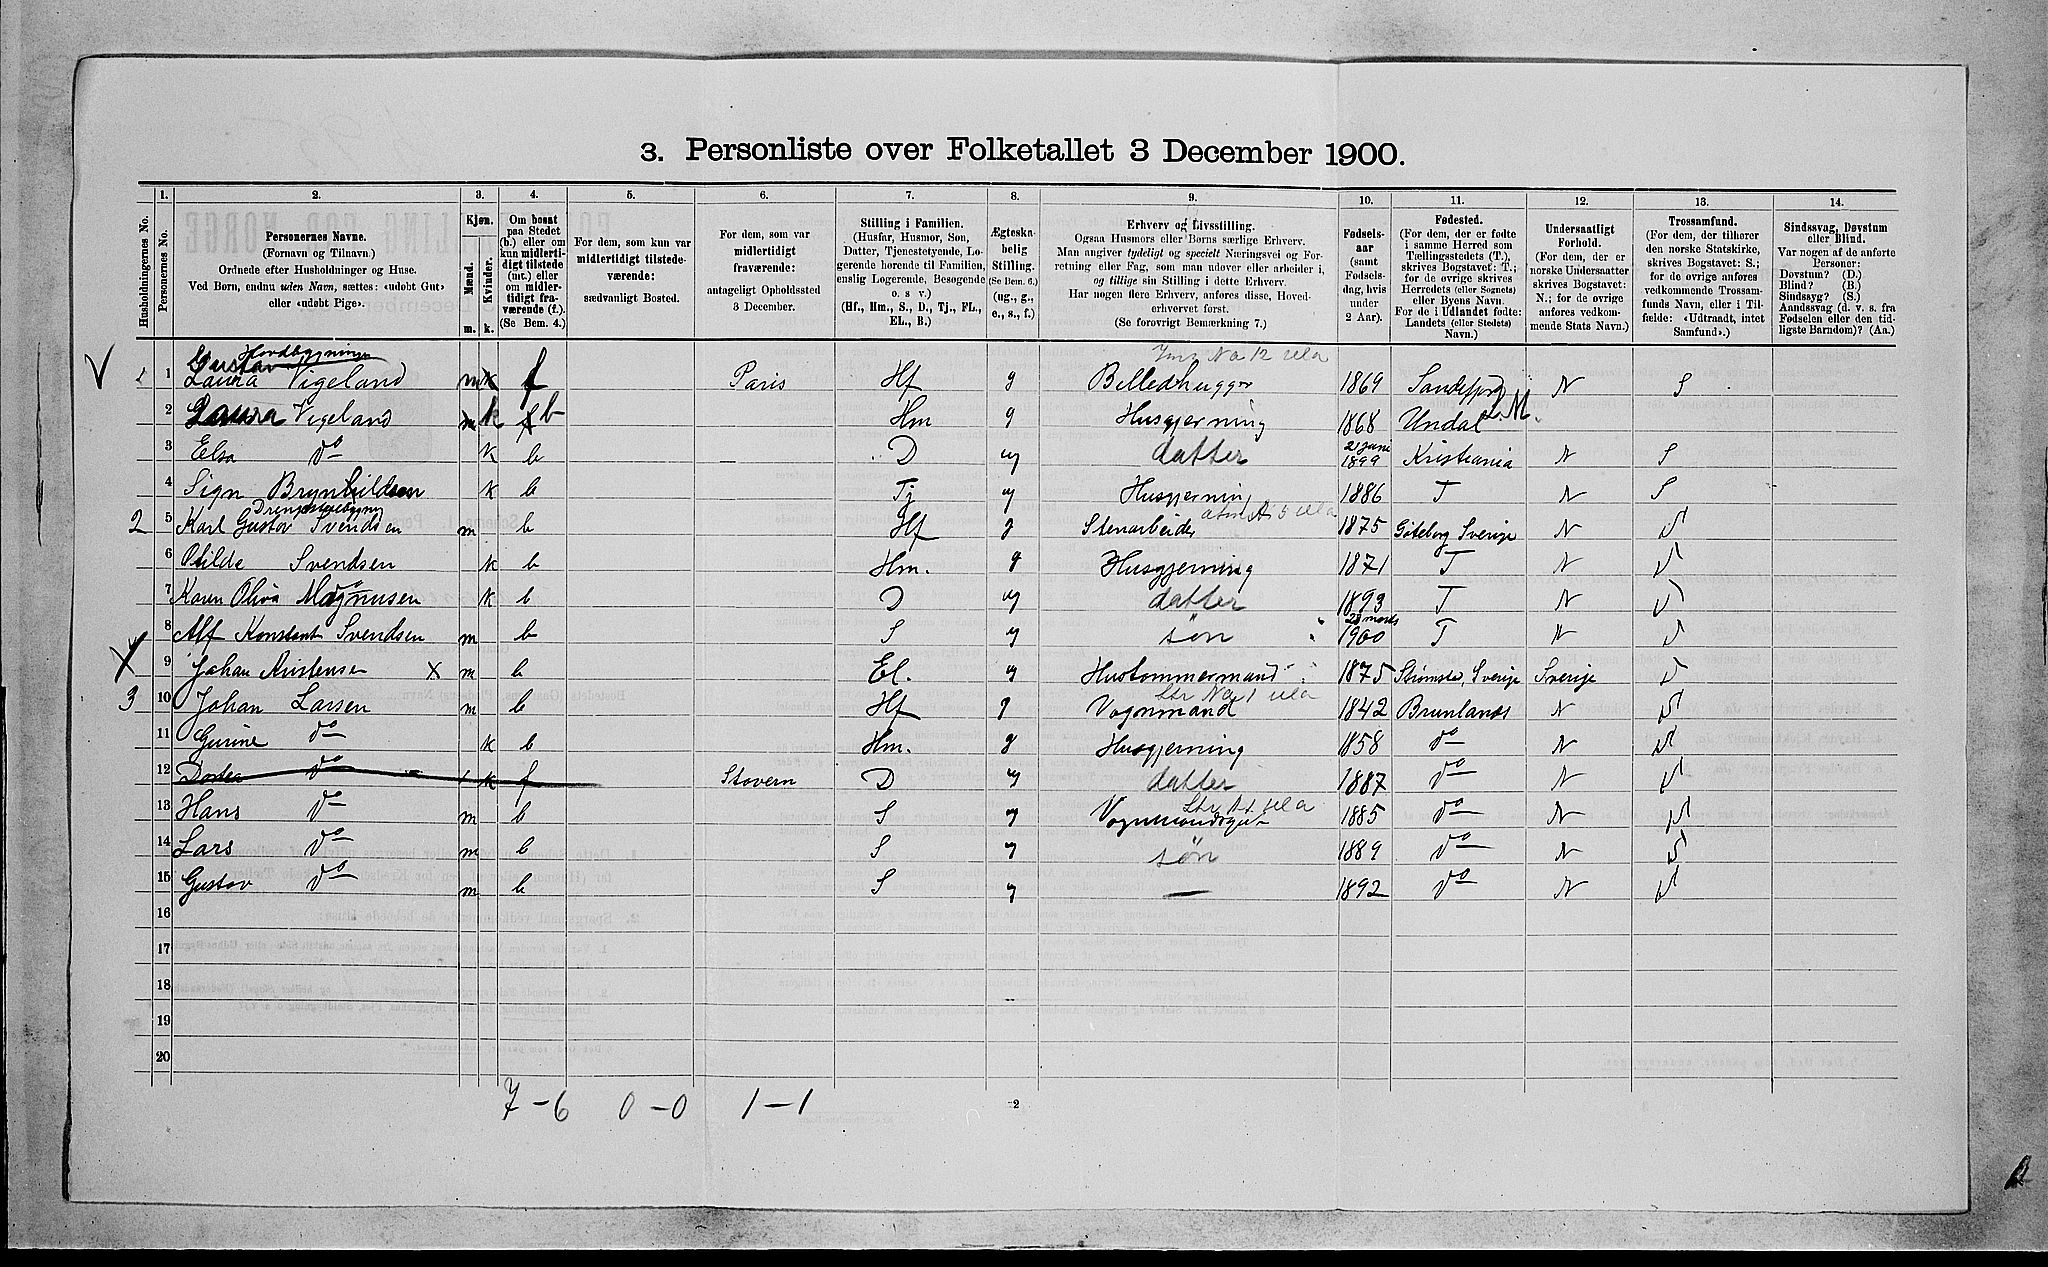 3. Personliste over Folketallet 3 December 1900.
1. 2. 3. 4. 5. 6. 7. 8. 9. 10. 11. 12. 13. 14.
Husholdningernes No.
Personernes No.
Personernes Navne.
(Fornavn og Tilnavn.)
Ordnede efter Husholdninger og Huse.
Ved Børn, endnu uden Navn, sættes: «udøbt Gut»
eller «udøbt Pige».
Kjøn.
Mænd.
Kvinder.
m. k.
Om bosat
paa Stedet
(b.) eller om
kun midlerti-
digt tilstede
(mt.) eller
om midler-
tidigt fra-
værende (f.).
(Se Bem. 4.)
For dem, som kun var
midlertidigt tilstede-
værende:
sædvanligt Bosted.
For dem, som var
midlertidigt
fraværende:
antageligt Opholdssted
3 December.
Stilling i Familien.
(Husfar, Husmor, Søn,
Datter, Tjenestetyende, Lo-
gerende hørende til Familien,
enslig Logerende, Besøgende
o. s. v.)
(Hf., Hm., S., D., Tj., FL.,
EL., B.)
Ægteska-
belig
Stilling.
(Se Bem. 6.)
(ug., g.,
e., s., f.)
Erhverv og Livsstilling.
Ogsaa Husmors eller Børns særlige Erhverv.
Man angiver tydeligt og specielt Næringsvei og For-
retning eller Fag, som man udøver eller arbeider i,
og tillige sin Stilling i dette Erhverv.
Har nogen flere Erhverv, anføres disse, Hoved-
erhvervet først.
(Se forøvrigt Bemærkning 7.)
Fødsels-
aar
(samt
Fødsels-
dag, hvis
under
2 Aar).
Fødested.
(For dem, der er fødte
i samme Herred som
Tællingsstedets (T.),
skrives Bogstavet: T.;
for de øvrige skrives
Herredets (eller Sognets)
eller Byens Navn.
For de i Udlandet fødte:
Landets (eller Stedets)
Navn.)
Undersaatligt
Forhold.
(For dem, der er
norske Undersaatter
skrives Bogstavet:
N.; for de øvrige
anføres vedkom-
mende Stats Navn.)
Trossamfund.
(For dem, der tilhører
den norske Statskirke,
skrives Bogstavet: S.;
for de øvrige anføres
vedkommende Trossam-
funds Navn, eller i Til-
fælde: «Udtraadt, intet
Samfund».)
Sindssvag, Døvstum
eller Blind.
Var nogen af de anførte
Personer:
Døvstum? (D.)
Blind? (B.)
Sindssyg? (S.)
Aandssvag (d. v. s. fra
Fødselen eller den tid-
ligste Barndom)? (Aa.)
Hovdbygningen
1 Gustav Vigeland m f Paris Hf g Billedhugger 1869 Sandefjord N S
2 Laura Vigeland k b Hm g Husgjerning 1868 Undal
3 Elsa do k b D ug datter 21 juni 1899 Kristiania N S
4 Sign Brynhildsen k b Tj ug Husgjerning 1886 T N S
2 5 Karl Gustov Svendsen m Hf g Stenarbeider 1875 Gøteborg Sverije N
6 Otilde Svendsen k b Hm. g Husgjerning 1871 T N
7 Karen Oliva Magnusen k b D ug datter 1893 T N
8 Alf Konstant Svendsen m b S ug søn 1900 T N
9 Johan Kristensen X m b El. ug Hustommermand 1875 Strømsta, Sverije Sverije
3 10 Johan Larsen m b Hf g Vognmand 1842 Brunlanes N
11 Gurine do k b Hm. g Husgjerning 1858 do N
12 Dortea do k f Stavern D ug datter 1887 do N
13 Hans do m b S ug 1885 do N
14 Lars do m b S ug søn 1889 do N
15 Gustav do m b S ug — 1892 do N
16
17
18
19
20
7 – 6 0 – 0 1 – 1
2